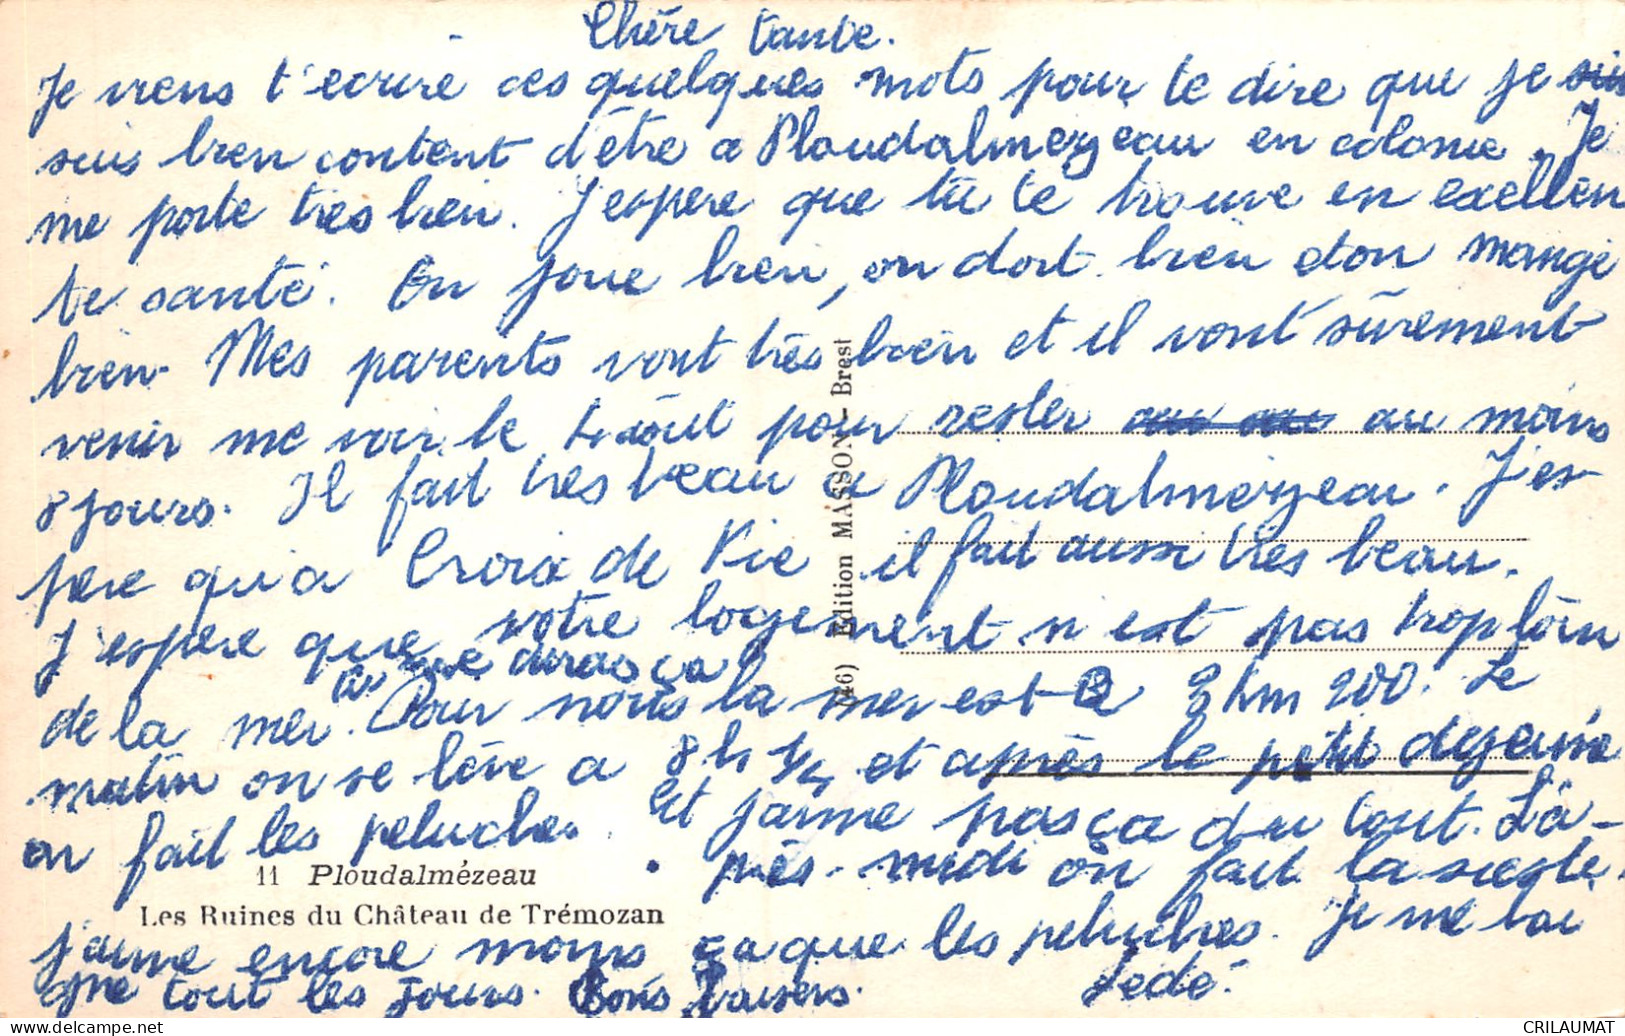 Chère tante.
Je viens t'ecrire ces quelques mots pour te dire que je
suis bien content d'être a Ploudalmezeau en colonie. Je
me porte tres bien. J'espere que tu te trouve en exellen
te santé. On joue bien, on dort bien et on mange
bien. Mes parents vont très bien et il vont sûrement
venir me voir le août pour rester au moins
8 jours. Il fait tres beau a Ploudalmezeau. J'es-
pere qu'a Croix de Vie il fait aussi très beau.
J'espere que votre logement n'est pas trop loin
de la mer. Pour nous la mer est a 2 km 200. Le
matin on se lève a 8 h 1/4 et après le petit dejeuné
on fait les peluches. Et j'aime pas ça du tout. L'a-
près-midi on fait la sieste.
j'aime encore moins ça que les peluches. Je me bai
gne tout les jours. Bons Baisers. Dédé.
11 Ploudalmézeau
Les Ruines du Château de Trémozan
(46) Edition MASSON Brest
CRILAUMAT